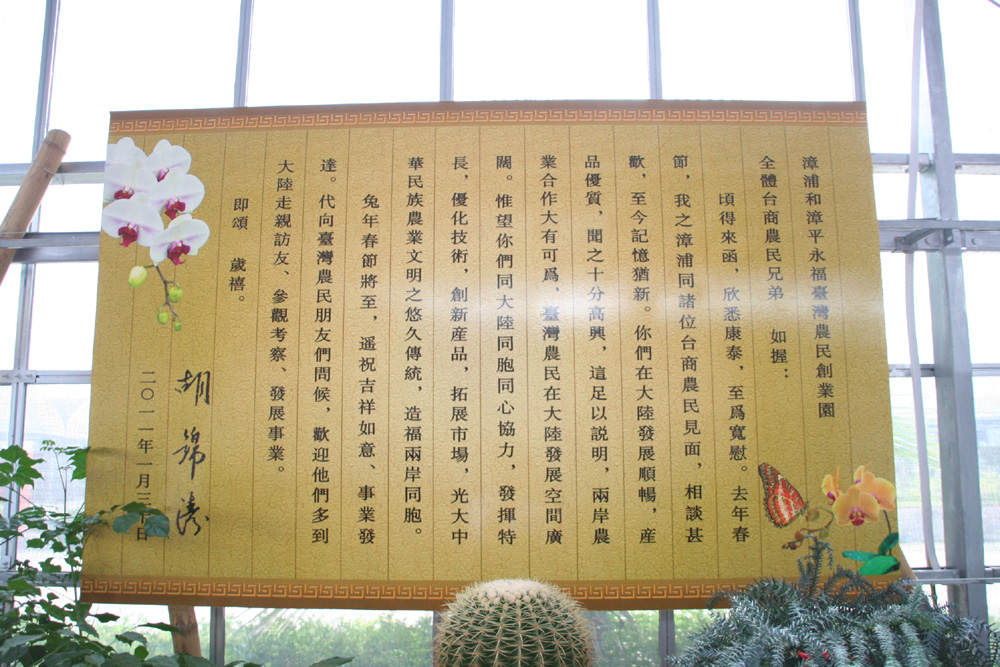 漳浦和漳平永福臺灣農民創業園
全體台商農民兄弟 如握：
頃得來函，欣悉康泰，至爲寬慰。去年春
節，我之漳浦同諸位台商農民見面，相談甚
歡，至今記憶猶新。你們在大陸發展順暢，産
品優質，聞之十分高興，這足以説明，兩岸農
業合作大有可爲，臺灣農民在大陸發展空間廣
闊。惟望你們同大陸同胞同心協力，發揮特
長，優化技術，創新産品，拓展市場，光大中
華民族農業文明之悠久傳統，造福兩岸同胞。
兔年春節將至，遥祝吉祥如意、事業發
達。代向臺灣農民朋友們問候，歡迎他們多到
大陸走親訪友、參觀考察、發展事業。
即頌 歲禧。
胡錦濤
二〇一一年一月三十日